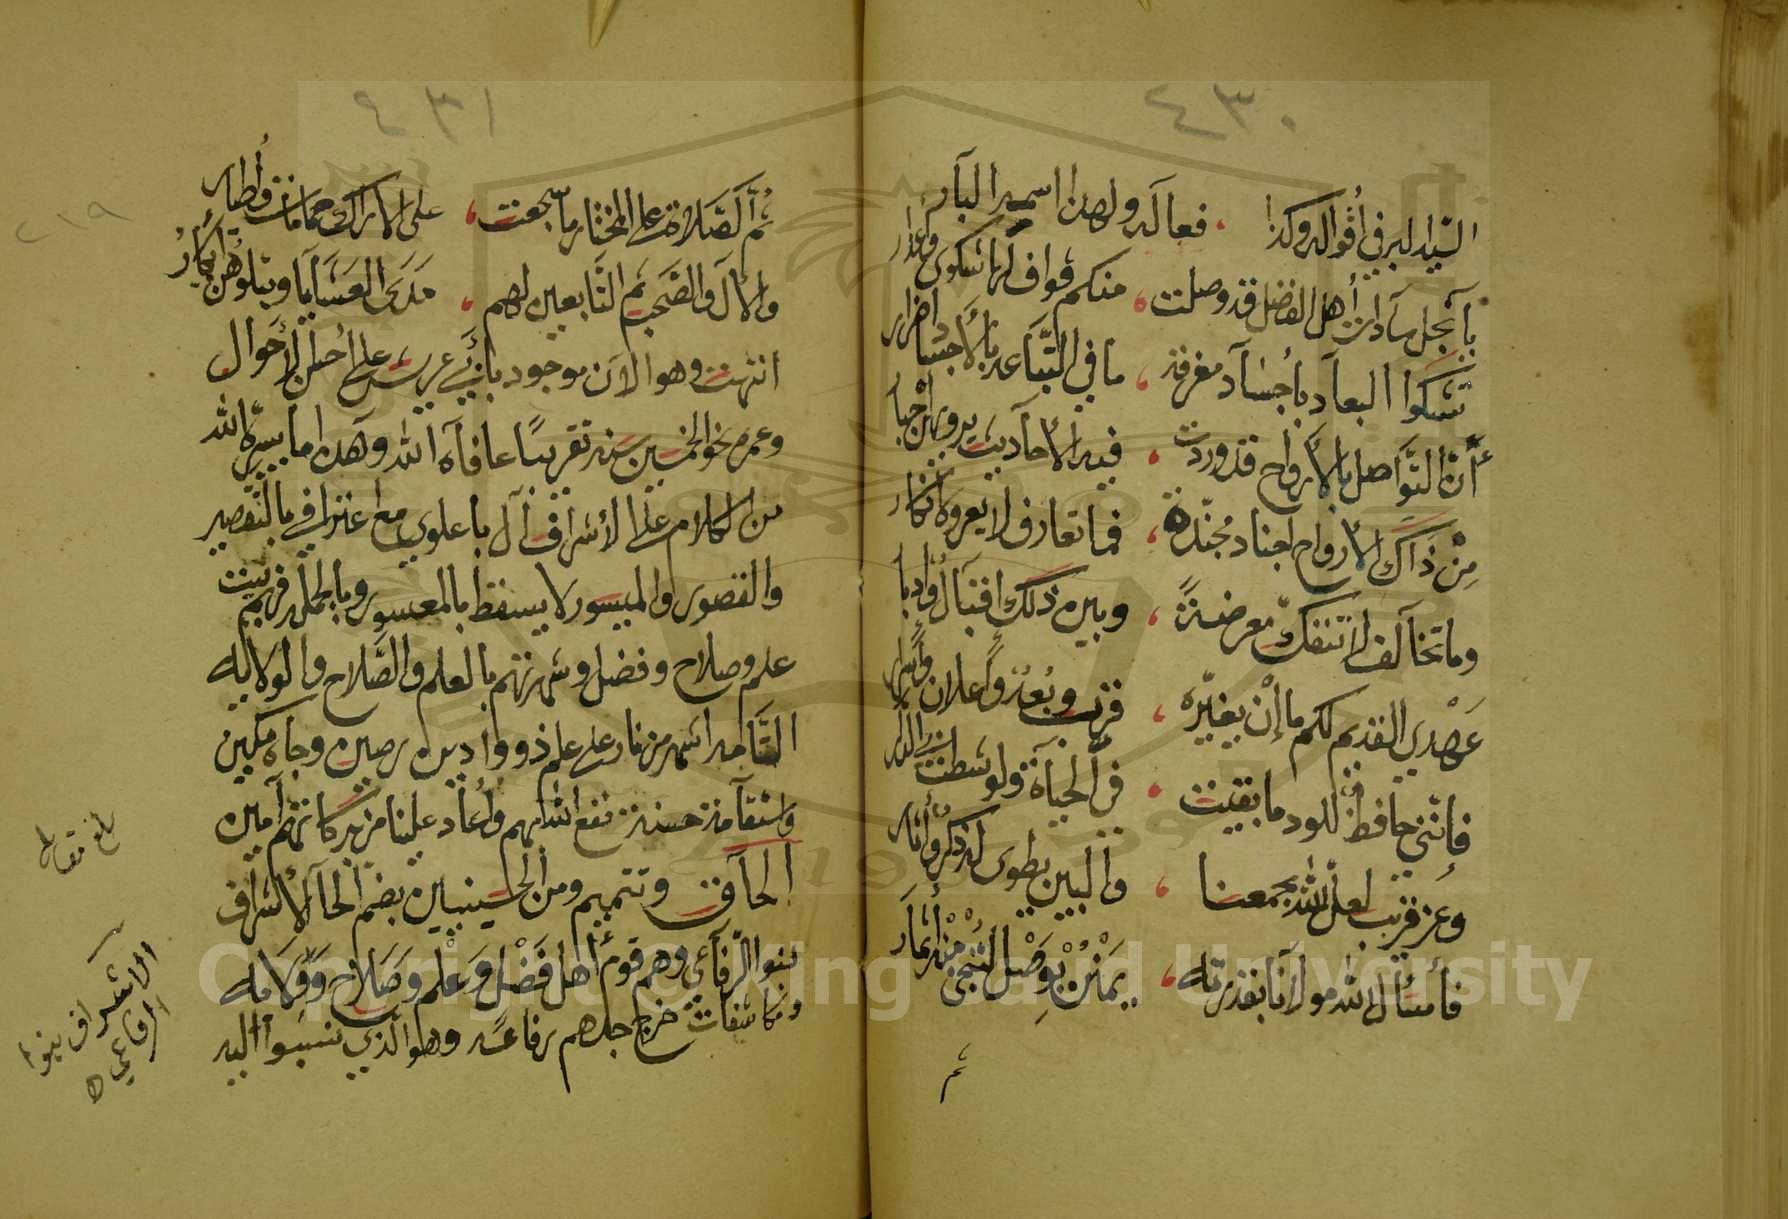 ٤٣٠
السيد البر في أقواله وكذا ، فعاله ولهذا اسمه البار
يا نجل سادات أهل الفضل قد وصلت ، منكم قواف لها شكوى وأعذار
تشكوا البعاد بأجساد مفرقة ، ما في التباعد بالأجساد اضرار
أن التواصل بالأرواح قد وردت ، فيه الأحاديث يرويهن أحبار
من ذاك الأرواح اجناد مجندة ، فما تعارف لا يعروه انكار
وما تخالف لا تنفك معرضة ، وبين ذلك اقبال وادبار
عهدي القديم لكم ما إن يغيره ، قرب وبعد وأعلان وأسرار
فإنني حافظ للود ما بقيت ، في الحياة ولو شطت بي الدار
وعن قريب لعل الله يجمعنا ، والبين يطوى له ذكر وآثار
فأسئال الله مولانا بقدرته ، يمنن بوصل لتجنى منه أثمار
ثم
٤٣١
٢١٩
ثم الصلاة على المختار ما سجعت ، على الاراك حمامات وأطيار
والآل والصحب ثم التابعين لهم ، مدى العشايا ويتلوهن ابكار
انتهت وهو الآن موجود بأبي عريش على أحسن الأحوال
وعمره نحو الخمسين سنة تقريبًا عافاه الله وهذا ما يسره الله
من الكلام على الأشراف آل باعلوي مع اعترافي بالتقصير
والقصور والميسور لا يسقط بالمعسور وبالجملة فهم بيت
علم وصلاح وفضل وشهرتهم بالعلم والصلاح والولاية
التامة اشهر من نار على علم ذووا دين رصين وجاه مكين
واستقامة حسنة نفع الله بهم وأعاد علينا من بركاتهم آمين
الحاق وتتميم ومن الحسينيين بضم الحآ الأشراف
بنوا الرفاعي وهم قوم أهل فضل وعلم وصلاح وولاية
ومكاشفات خرج جدهم رفاعة وهو الذي نسبوا اليه
بلغ مقابلة
الاشراف بنوا
الرفاعي